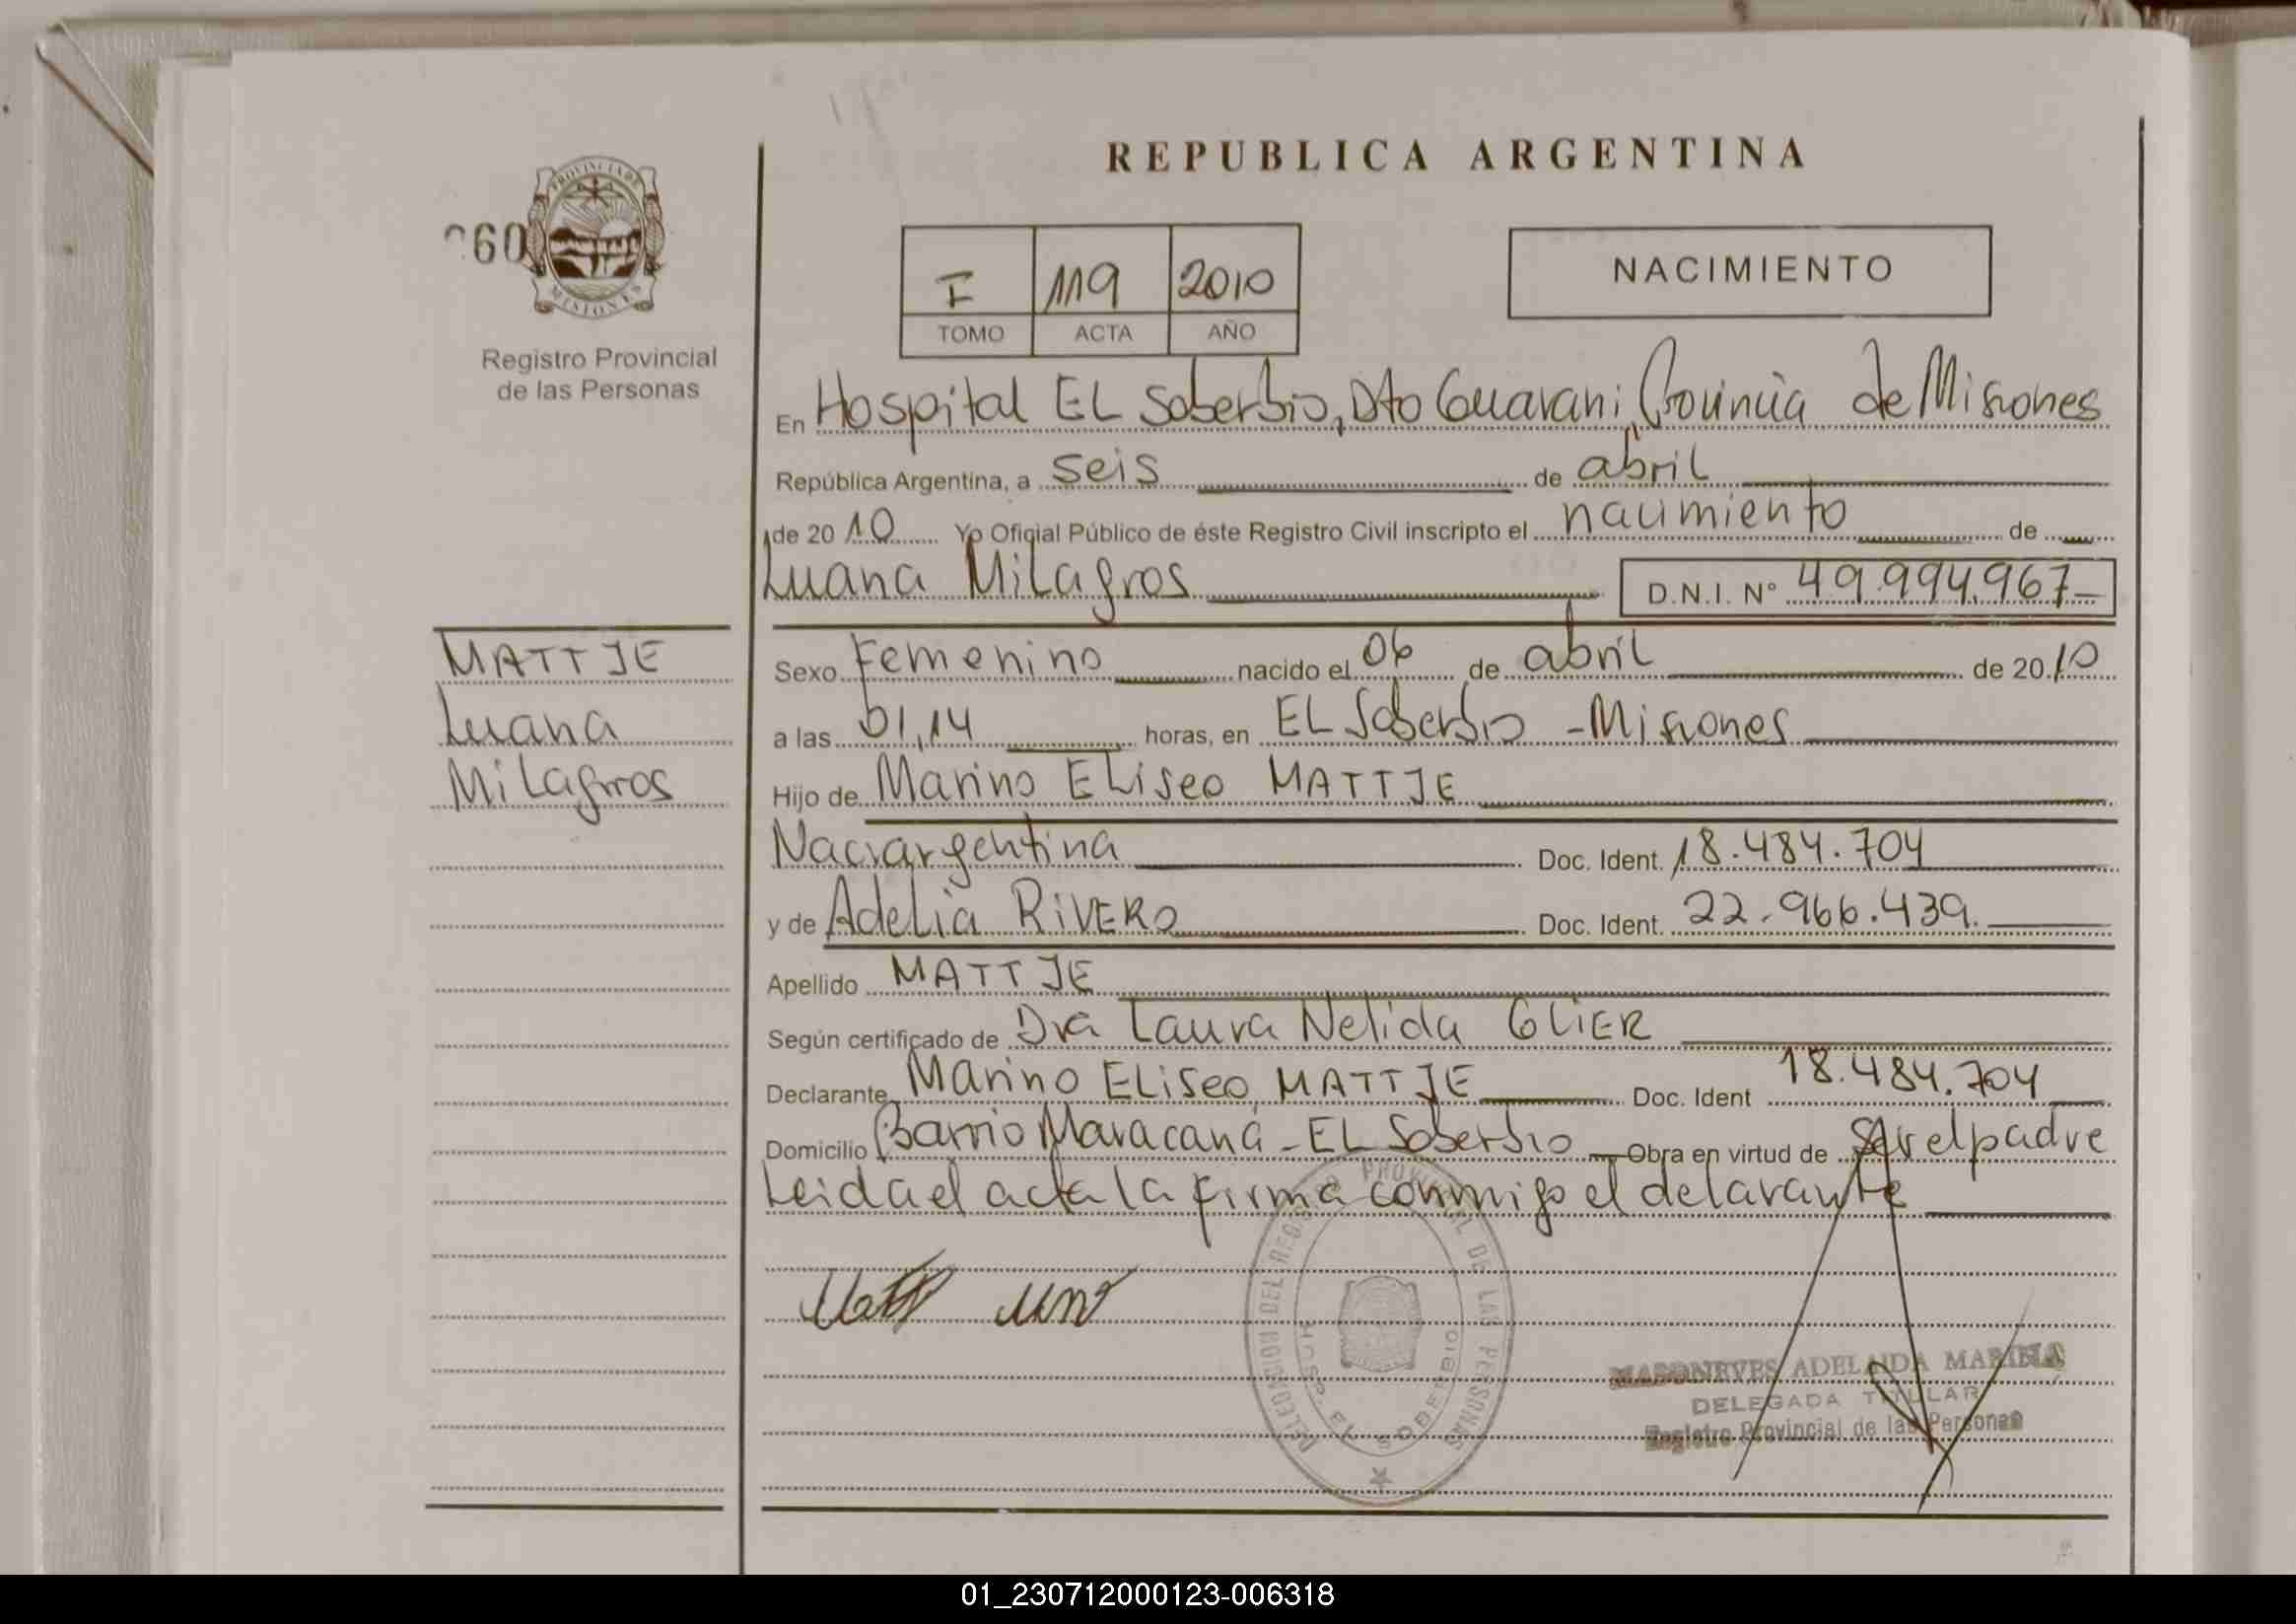 REPUBLICA ARGENTINA
PROVINCIA DE
MISIONES
60
Registro Provincial
de las Personas
I 119 2010
TOMO ACTA AÑO
NACIMIENTO
En Hospital EL Soberbio, Dto Guarani, Provincia de Misiones
República Argentina, a seis de abril
de 2010 Yo Oficial Público de éste Registro Civil inscripto el nacimiento de
Luana Milagros D.N.I. Nº 49.994.967
MATTJE
Luana
Milagros
Sexo Femenino nacido el 06 de abril de 2010
a las 01,14 horas, en EL Soberbio - Misiones
Hijo de Marino ELiseo MATTJE
Nac. argentina Doc. Ident. 18.484.704
y de Adelia RIVERO Doc. Ident. 22.966.439.
Apellido MATTJE
Según certificado de Dra Laura Nelida GLIER
Declarante Marino ELiseo MATTJE Doc. Ident 18.484.704
Domicilio Barrio Maracaná - EL Soberbio Obra en virtud de ser el padre
Leida el acta la firma conmigo el delarante
DELEGACION DEL REGISTRO PROVINCIAL DE LAS PERSONAS
EL SOBERBIO
ADELAIDA MARIELA
DELEGADA TITULAR
Registro Provincial de las Personas
01_230712000123-006318